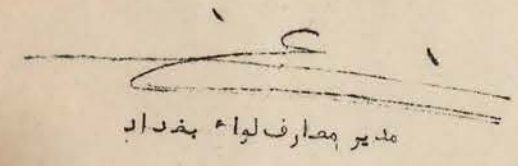 مدير معارف لواء بغداد